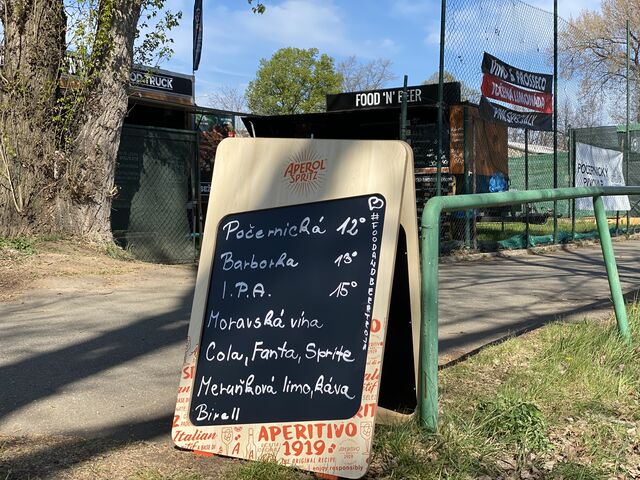 FOOD 'N' BEER
OD TRUCK
VÍNO & PROSSECO
TOČENÁ LIMONÁDA
POČERNICKÝ
APEROL
SPRITZ
Počernická 12°
Barborka 13°
I.P.A. 15°
Moravská vína
Cola, Fanta, Sprite
Meruňková limo, káva
Birell
#FOODANDBEERTROJA
Italian
APERITIVO
1919
THE ORIGINAL RECIPE
enjoy responsibly